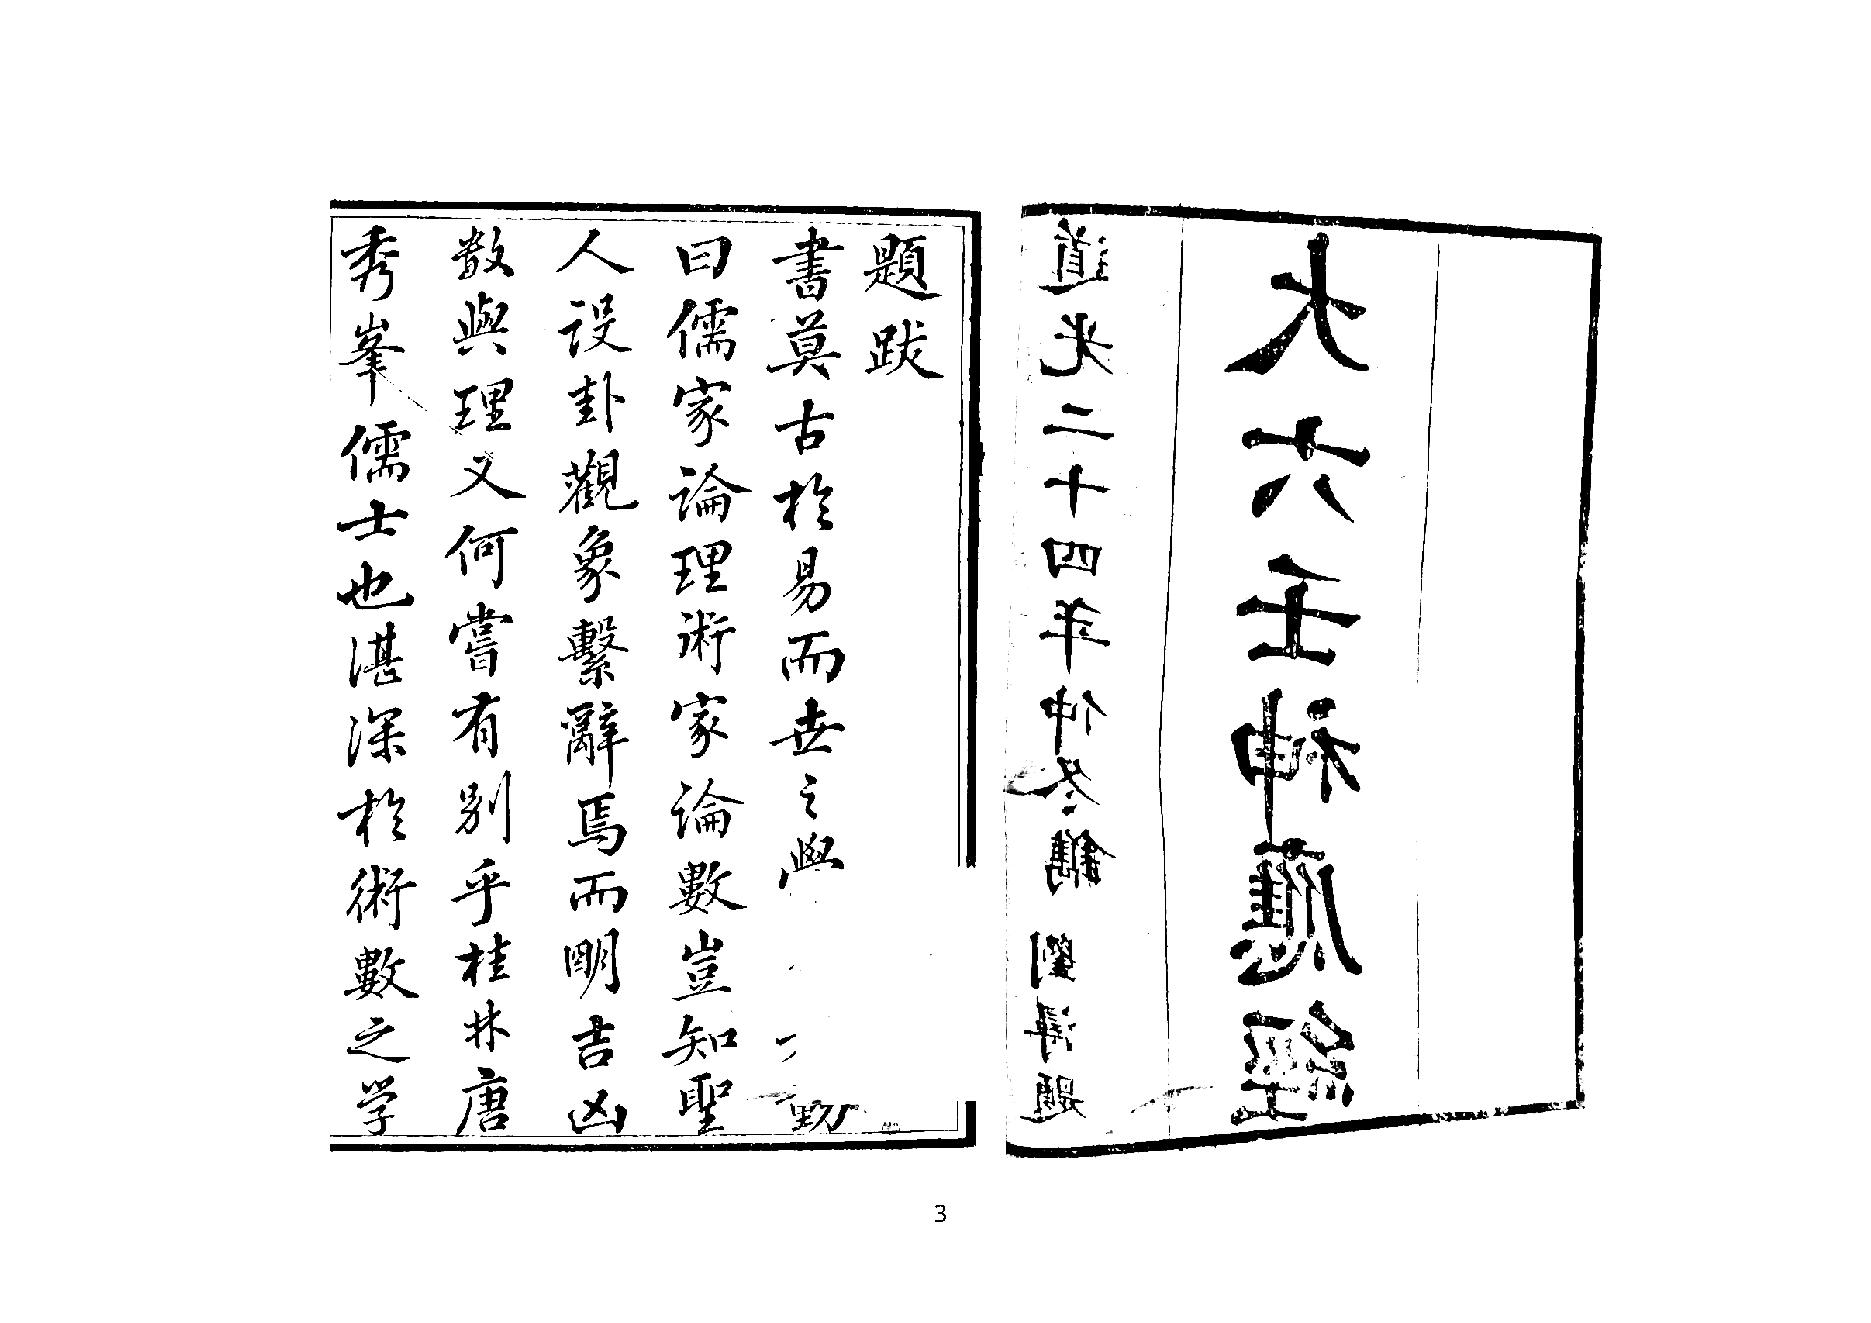 大六壬神應經
道光二十四年仲冬鐫 劉題
題跋
書莫古於易而世之
曰儒家論理術家論數豈知聖
人設卦觀象繫辭焉而明吉凶
数與理又何嘗有别乎桂林唐
秀峯儒士也湛深於術數之学
3